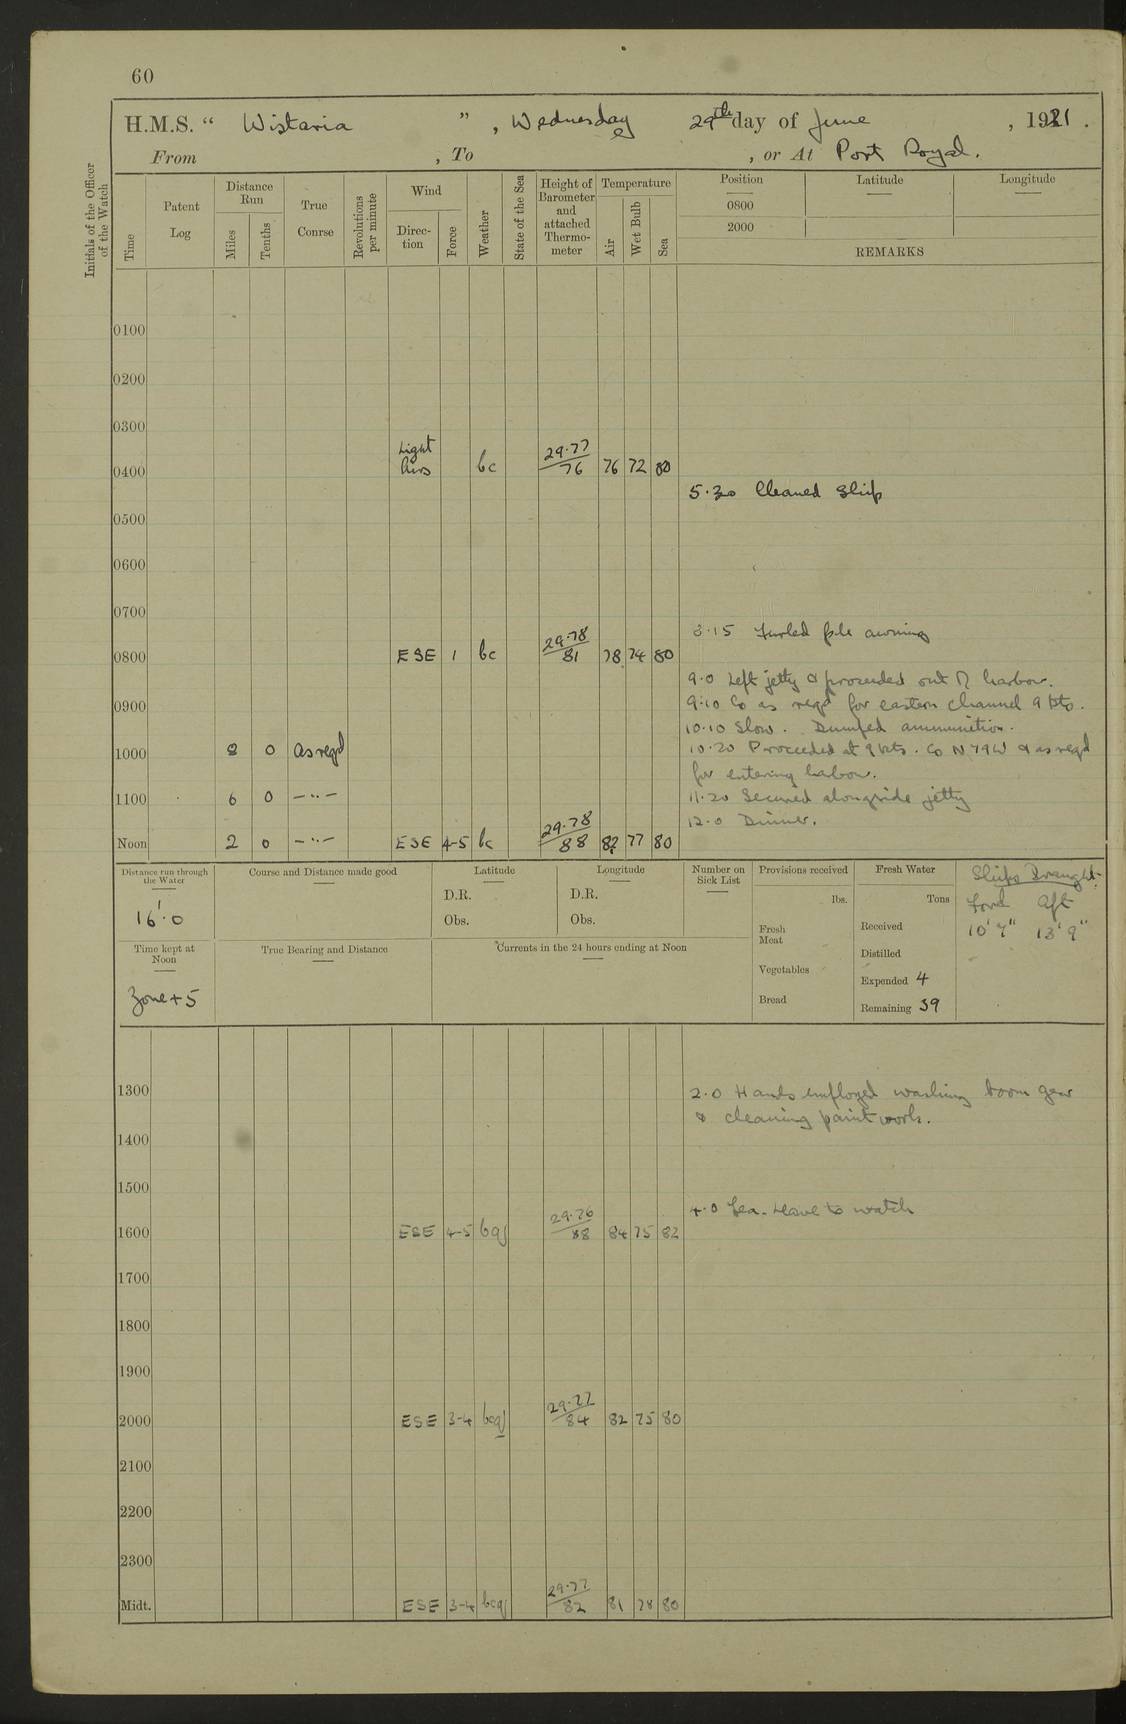 60
H.M.S. " Wistaria ", Wednesday 29th day of June, 1921.
From , To , or At Port Royal.
Initials of the Officer of the Watch
Time
Patent Log
Distance Run
Miles
Tenths
True Course
Revolutions per minute
Wind
Direction
Force
Weather
State of the Sea
Height of Barometer and attached Thermometer
Temperature
Air
Wet Bulb
Sea
Position Latitude Longitude
0800
2000
REMARKS
0100
0200
0300
0400 Light Airs bc 29.77/76 76 72 80
5.30 Cleaned Ship
0500
0600
0700
8.15 Furled awning
0800 ESE 1 bc 29.78/81 78 74 80
9.0 Left jetty & proceeded out of harbour.
0900
9.10 Co as reqd for eastern channel 9 kts.
10.10 Slow. Dumped ammunition.
1000 8 0 As reqd
10.20 Proceeded at 9 kts. Co N 79 W & as reqd
for entering harbour.
1100 6 0 — " —
11.20 Secured alongside jetty
12.0 Dinner.
Noon 2 0 — " — ESE 4-5 bc 29.78/88 82 77 80
Distance run through the Water
16'.0
Course and Distance made good
Latitude
D.R.
Obs.
Longitude
D.R.
Obs.
Number on Sick List
Provisions received
lbs.
Fresh Meat
Vegetables
Bread
Fresh Water
Tons
Received
Distilled
Expended 4
Remaining 39
Ships Draught.
Ford Aft
10' 7" 13' 9"
Time kept at Noon
Zone + 5
True Bearing and Distance
Currents in the 24 hours ending at Noon
1300
2.0 Hands employed washing boom gear
& cleaning paintwork.
1400
1500
4.0 Tea. Leave to watch
1600 ESE 4-5 bqj 29.76/88 84 75 82
1700
1800
1900
2000 ESE 3-4 bcq 29.77/84 82 75 80
2100
2200
2300
Midt. ESE 3-4 bcq 29.77/82 81 78 80